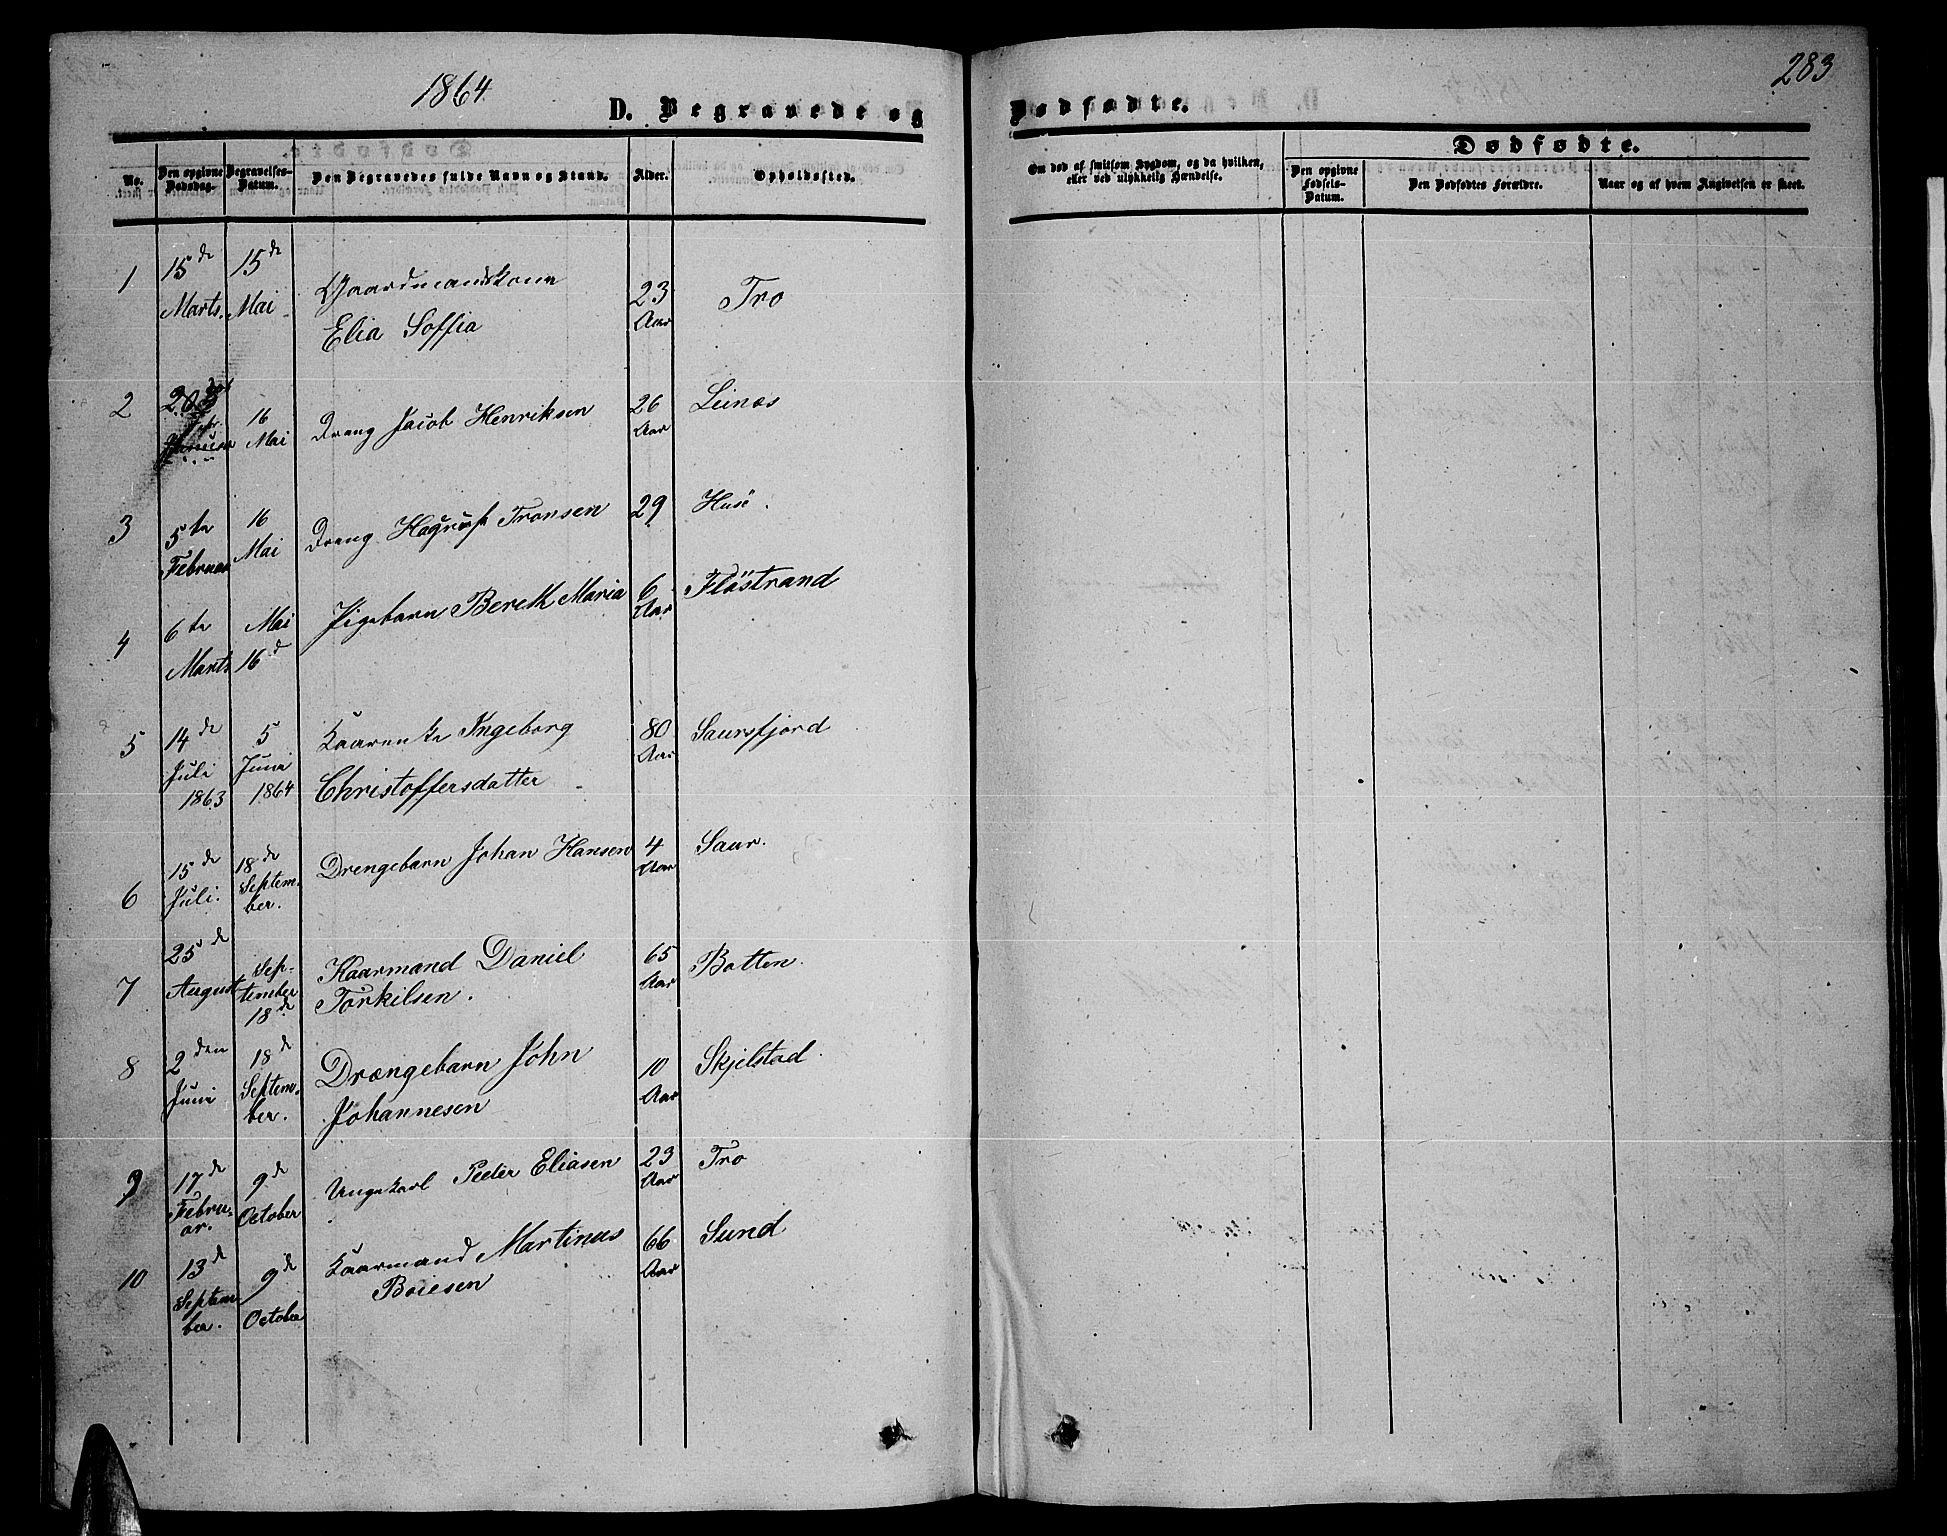 1864
283
D. Begravede og
Dødfødte.
Dødfødte.
No.
Den opgivne Dødsdag.
Begravelses-Datum.
Den Begravedes fulde Navn og Stand.
Alder.
Opholdssted.
Om død af smitsom Sygdom, og da hvilken, eller ved ulykkelig Hændelse.
Den opgivne Fødsels-Datum.
Den Dødfødtes Forældre.
Naar og af hvem Angivelsen er skeet.
1 15de Marts. 15de Mai Gaardmandskone Elia Soffia 23 Aar Tro
2 16 Mai Dreng Jacob Henriksen 26 Aar Leines
3 5te Februar 16 Mai Dreng Tronsen 29 Husø.
4 6te Marts Mai 16d Pigebarn Bereth Maria 6 Aar Fløstrand
5 14de Juli 1863 5 Juni 1864 Kaarenke Ingeborg Christoffersdatter 80 Aar Saursfjord
6 15de Juli. 18de September. Drengebarn Johan Hansen 4 Aar Saur.
7 25d August September 18d Kaarmand Daniel Torkilsen. 65 Aar Botten.
8 2den Juni 18d September. Drængebarn John Johannesen 10 Aar Skjelstad.
9 17de Februar. 9de October Ungekarl Peder Eliasen 23 Aar Tro
10 13d September. 9d October Kaarmand Martinus Boiesen 66 Aar Sund